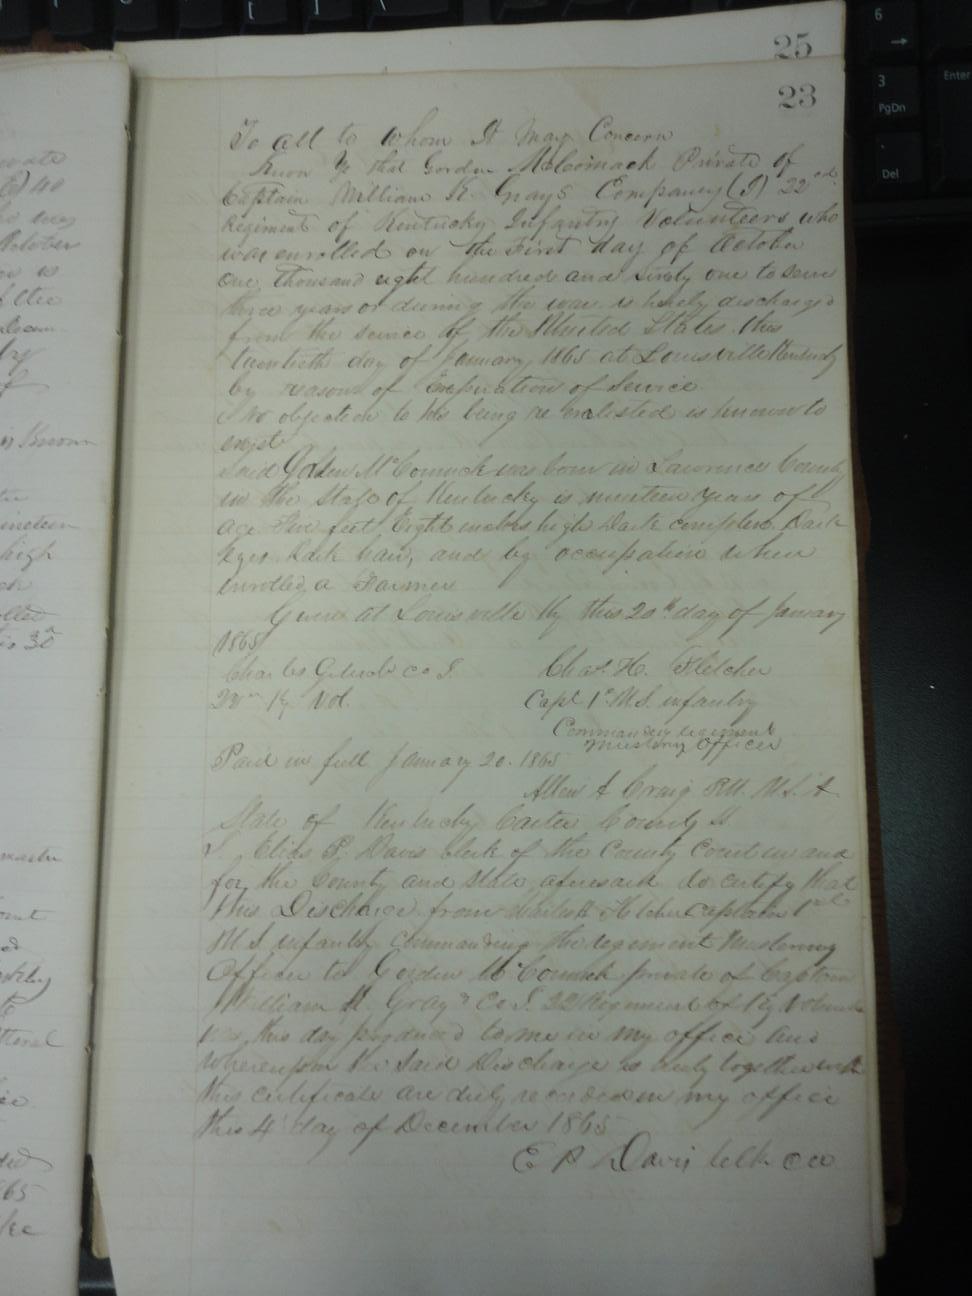 25
23
To all to whom It May Concern
Know Ye that Gorden McCormack Private of
Captain William H. Grays Company (I) 22nd
Regiment of Kentucky Infantry Volunteers who
was enrolled on the First day of October
One thousand eight hundred and sixty one to serve
three years or during the war is hereby discharged
from the service of the United States this
twentieth day of January, 1865 at Louisville Kentucky
by reasons of Expiration of Service
No objection to his being re enlisted is known to
exist
Said Gorden McCormick was born in Lawrence County
in the State of Kentucky is nineteen years of
age Five feet Eight inches high Dark complex Dark
Eyes Dark hair, and by occupation when
enrolled a Farmer
Given at Louisville Ky this 20th day of January
1865
Charles G. Co I. Chas. H. Fletcher
22nd Ky Vol. Capt 1st U.S. infantry
Commanding regiment
Mustering Officer
Paid in full January 20. 1865
Allen A Craig P.M. U.S.A.
State of Kentucky Carter County S.
I. Elias P. Davis clerk of the County Court in and
for the County and State aforesaid do certify that
this Discharge from Charles H Fletcher Captain 1st
U S infantry commanding the regiment Mustering
Officer to Gorden McCormick private of Captain
William H. Grays Co I. 22 Regiment of Ky Volunteer
was this day produced to me in my office and
whereupon the said Discharge is duly together with
this certificate are duly recorded in my office
this 4 day of December 1865
E P Davis Clk C C
Private
40
October
is
of the
by
of
is Known
nineteen
high
30
master
865